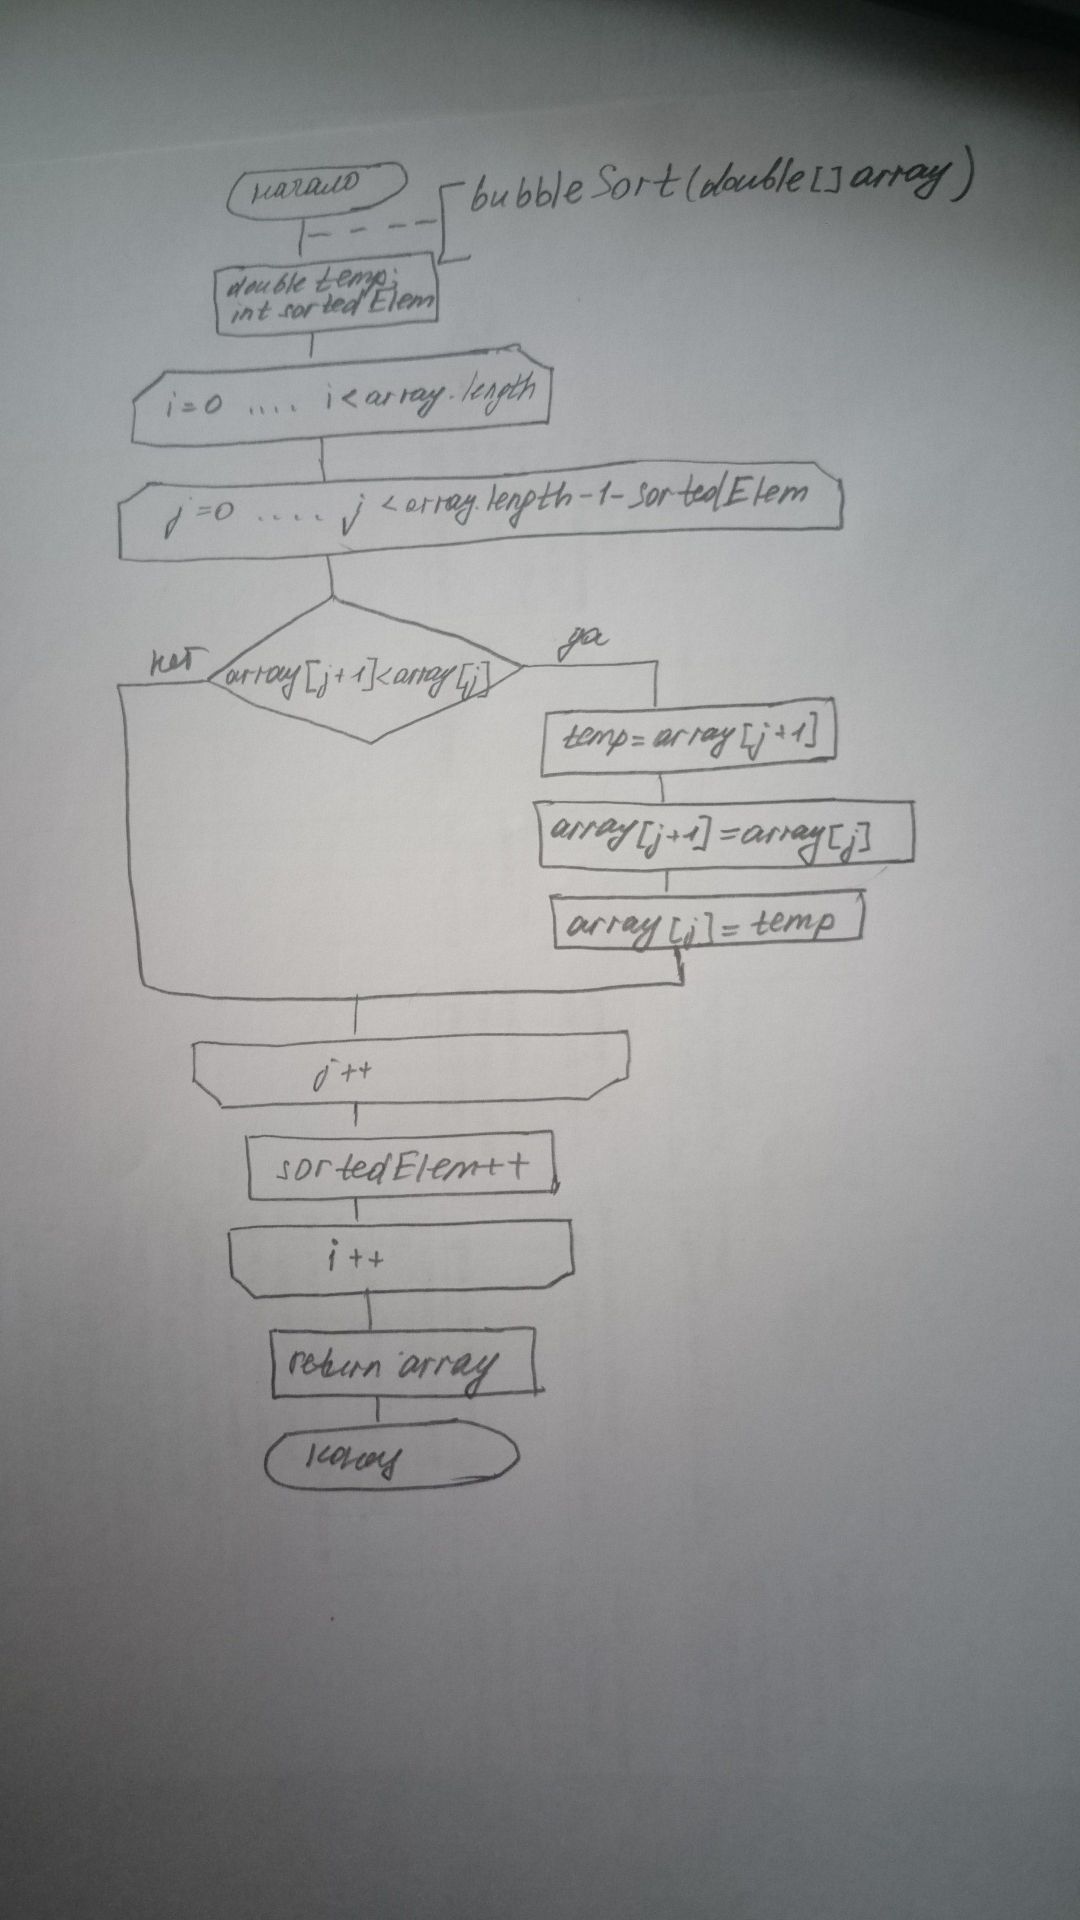 начало
bubbleSort(double[] array)
double temp;
int sortedElem
i=0 .... i<array.length
j=0 .... j<array.length-1-sortedElem
нет
да
array[j+1]<array[j]
temp=array[j+1]
array[j+1]=array[j]
array[j]=temp
j++
sortedElem++
i++
return array
конец